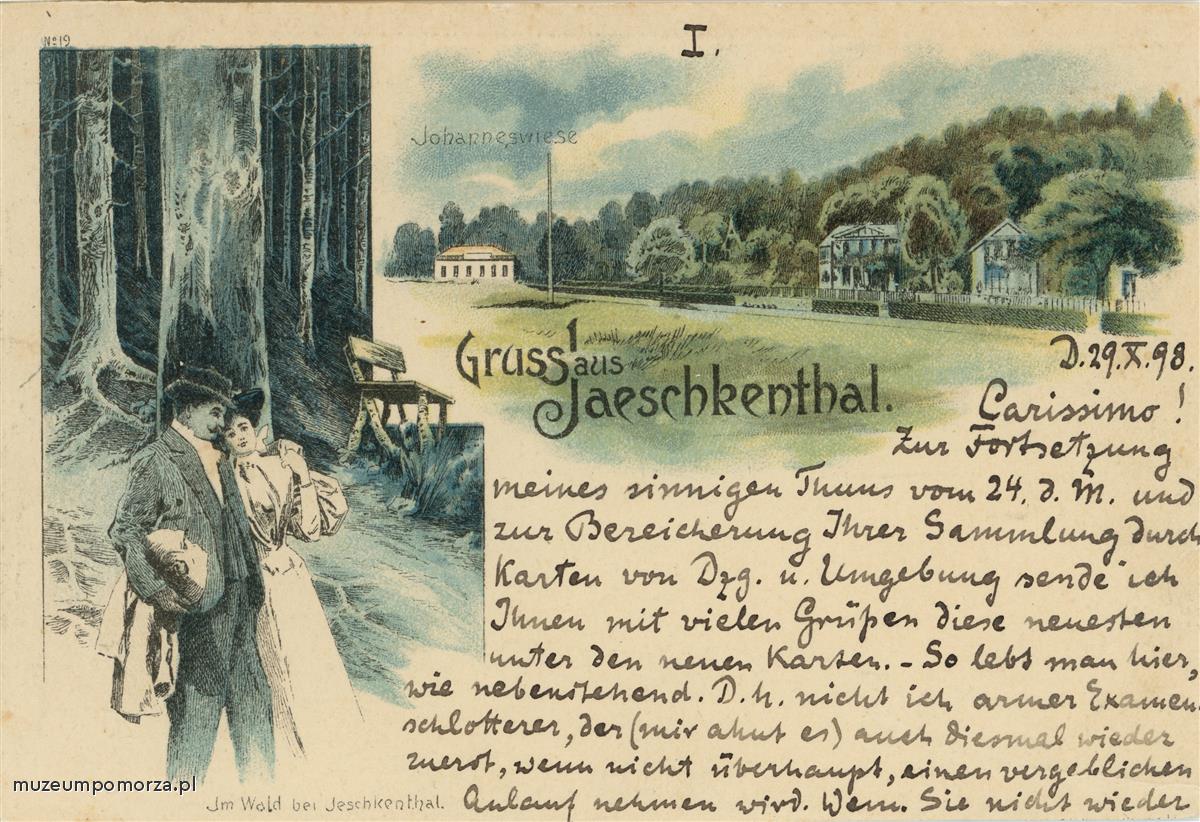 No 19
I.
Johanneswiese
Gruss aus
Jaeschkenthal.
D. 29. X. 98.
Carissimo!
Zur Fortsetzung
meines sinnigen Thuns vom 24. d. M. und
zur Bereicherung Ihrer Sammlung durch
Karten von Dzg. u. Umgebung sende ich
Ihnen mit vielen Grüßen diese neuesten
unter den neuen Karten. – So lebt man hier,
wie nebenstehend. D. h. nicht ich armer Examen-
schlotterer, der (mir ahnt es) auch diesmal wieder
zuerst, wenn nicht überhaupt, einen vergeblichen
Anlauf nehmen wird. Wenn Sie nicht wieder
Im Wald bei Jeschkenthal.
muzeumpomorza.pl